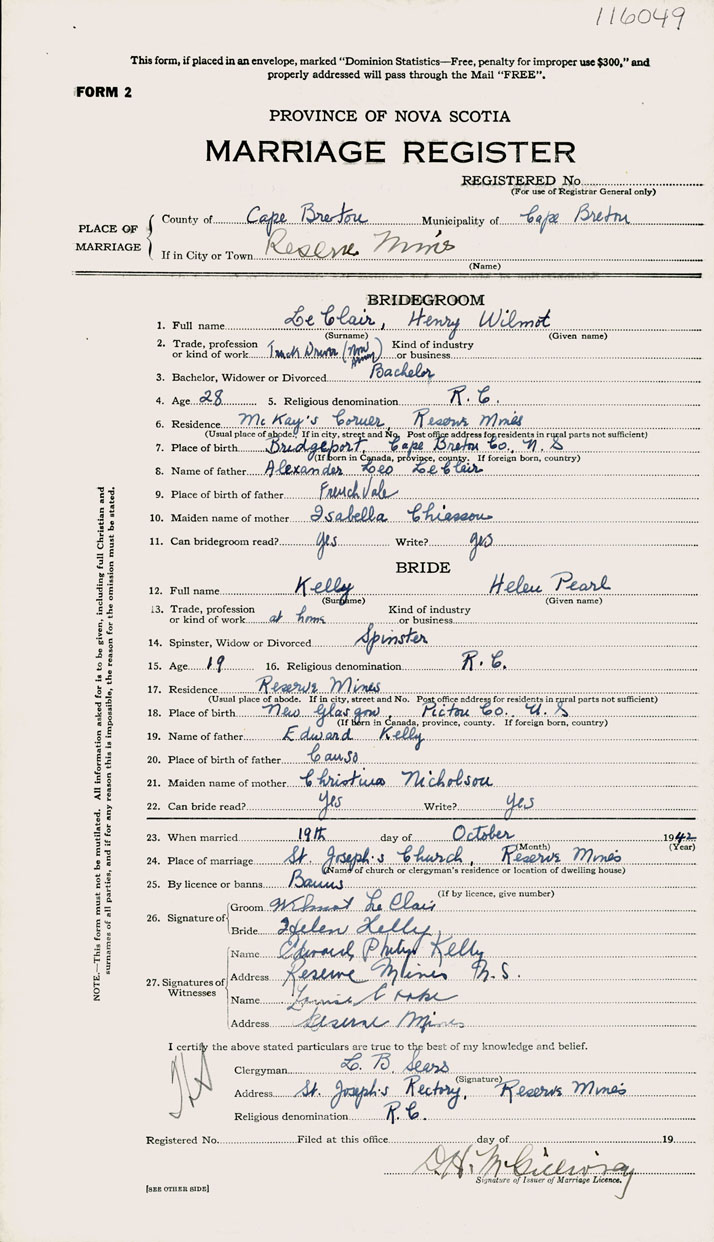 116049
This form, if placed in an envelope, marked "Dominion Statistics—Free, penalty for improper use $300," and
properly addressed will pass through the Mail "FREE".
FORM 2
PROVINCE OF NOVA SCOTIA
MARRIAGE REGISTER
REGISTERED No.
(For use of Registrar General only)
PLACE OF MARRIAGE
County of Cape Breton Municipality of Cape Breton
If in City or Town Reserve Mines
(Name)
BRIDEGROOM
1. Full name LeClair, Henry Wilmot
(Surname) (Given name)
2. Trade, profession or kind of work Truck Driver (Now Army) Kind of industry or business
3. Bachelor, Widower or Divorced Bachelor
4. Age 28 5. Religious denomination R.C.
6. Residence McKay's Corner, Reserve Mines
(Usual place of abode. If in city, street and No. Post office address for residents in rural parts not sufficient)
7. Place of birth Bridgeport, Cape Breton Co., N.S
(If born in Canada, province, county. If foreign born, country)
8. Name of father Alexander Leo LeClair
9. Place of birth of father French Vale
10. Maiden name of mother Isabella Chiasson
11. Can bridegroom read? Yes Write? yes
BRIDE
12. Full name Kelly Helen Pearl
(Surname) (Given name)
13. Trade, profession or kind of work at home Kind of industry or business
14. Spinster, Widow or Divorced Spinster
15. Age 19 16. Religious denomination R.C.
17. Residence Reserve Mines
(Usual place of abode. If in city, street and No. Post office address for residents in rural parts not sufficient)
18. Place of birth New Glasgow, Pictou Co. N.S
(If born in Canada, province, county. If foreign born, country)
19. Name of father Edward Kelly
20. Place of birth of father Canso
21. Maiden name of mother Christina Nicholson
22. Can bride read? Yes Write? Yes
23. When married 19th day of October 1942
(Month) (Year)
24. Place of marriage St. Joseph's Church, Reserve Mines
(Name of church or clergyman's residence or location of dwelling house)
25. By licence or banns Banns
(If by licence, give number)
26. Signature of
Groom Wilmot LeClair
Bride Helen Kelly
27. Signatures of Witnesses
Name Edward Philip Kelly
Address Reserve Mines N.S.
Name
Address Reserve Mines
I certify the above stated particulars are true to the best of my knowledge and belief.
Clergyman L. B. Sears
(Signature)
Address St. Joseph's Rectory, Reserve Mines
Religious denomination R.C.
Registered No. Filed at this office day of 19
D.H. McGillivray
Signature of Issuer of Marriage Licence.
[SEE OTHER SIDE]
NOTE.—This form must not be mutilated. All information asked for is to be given, including full Christian and
surnames of all parties, and if for any reason this is impossible, the reason for the omission must be stated.